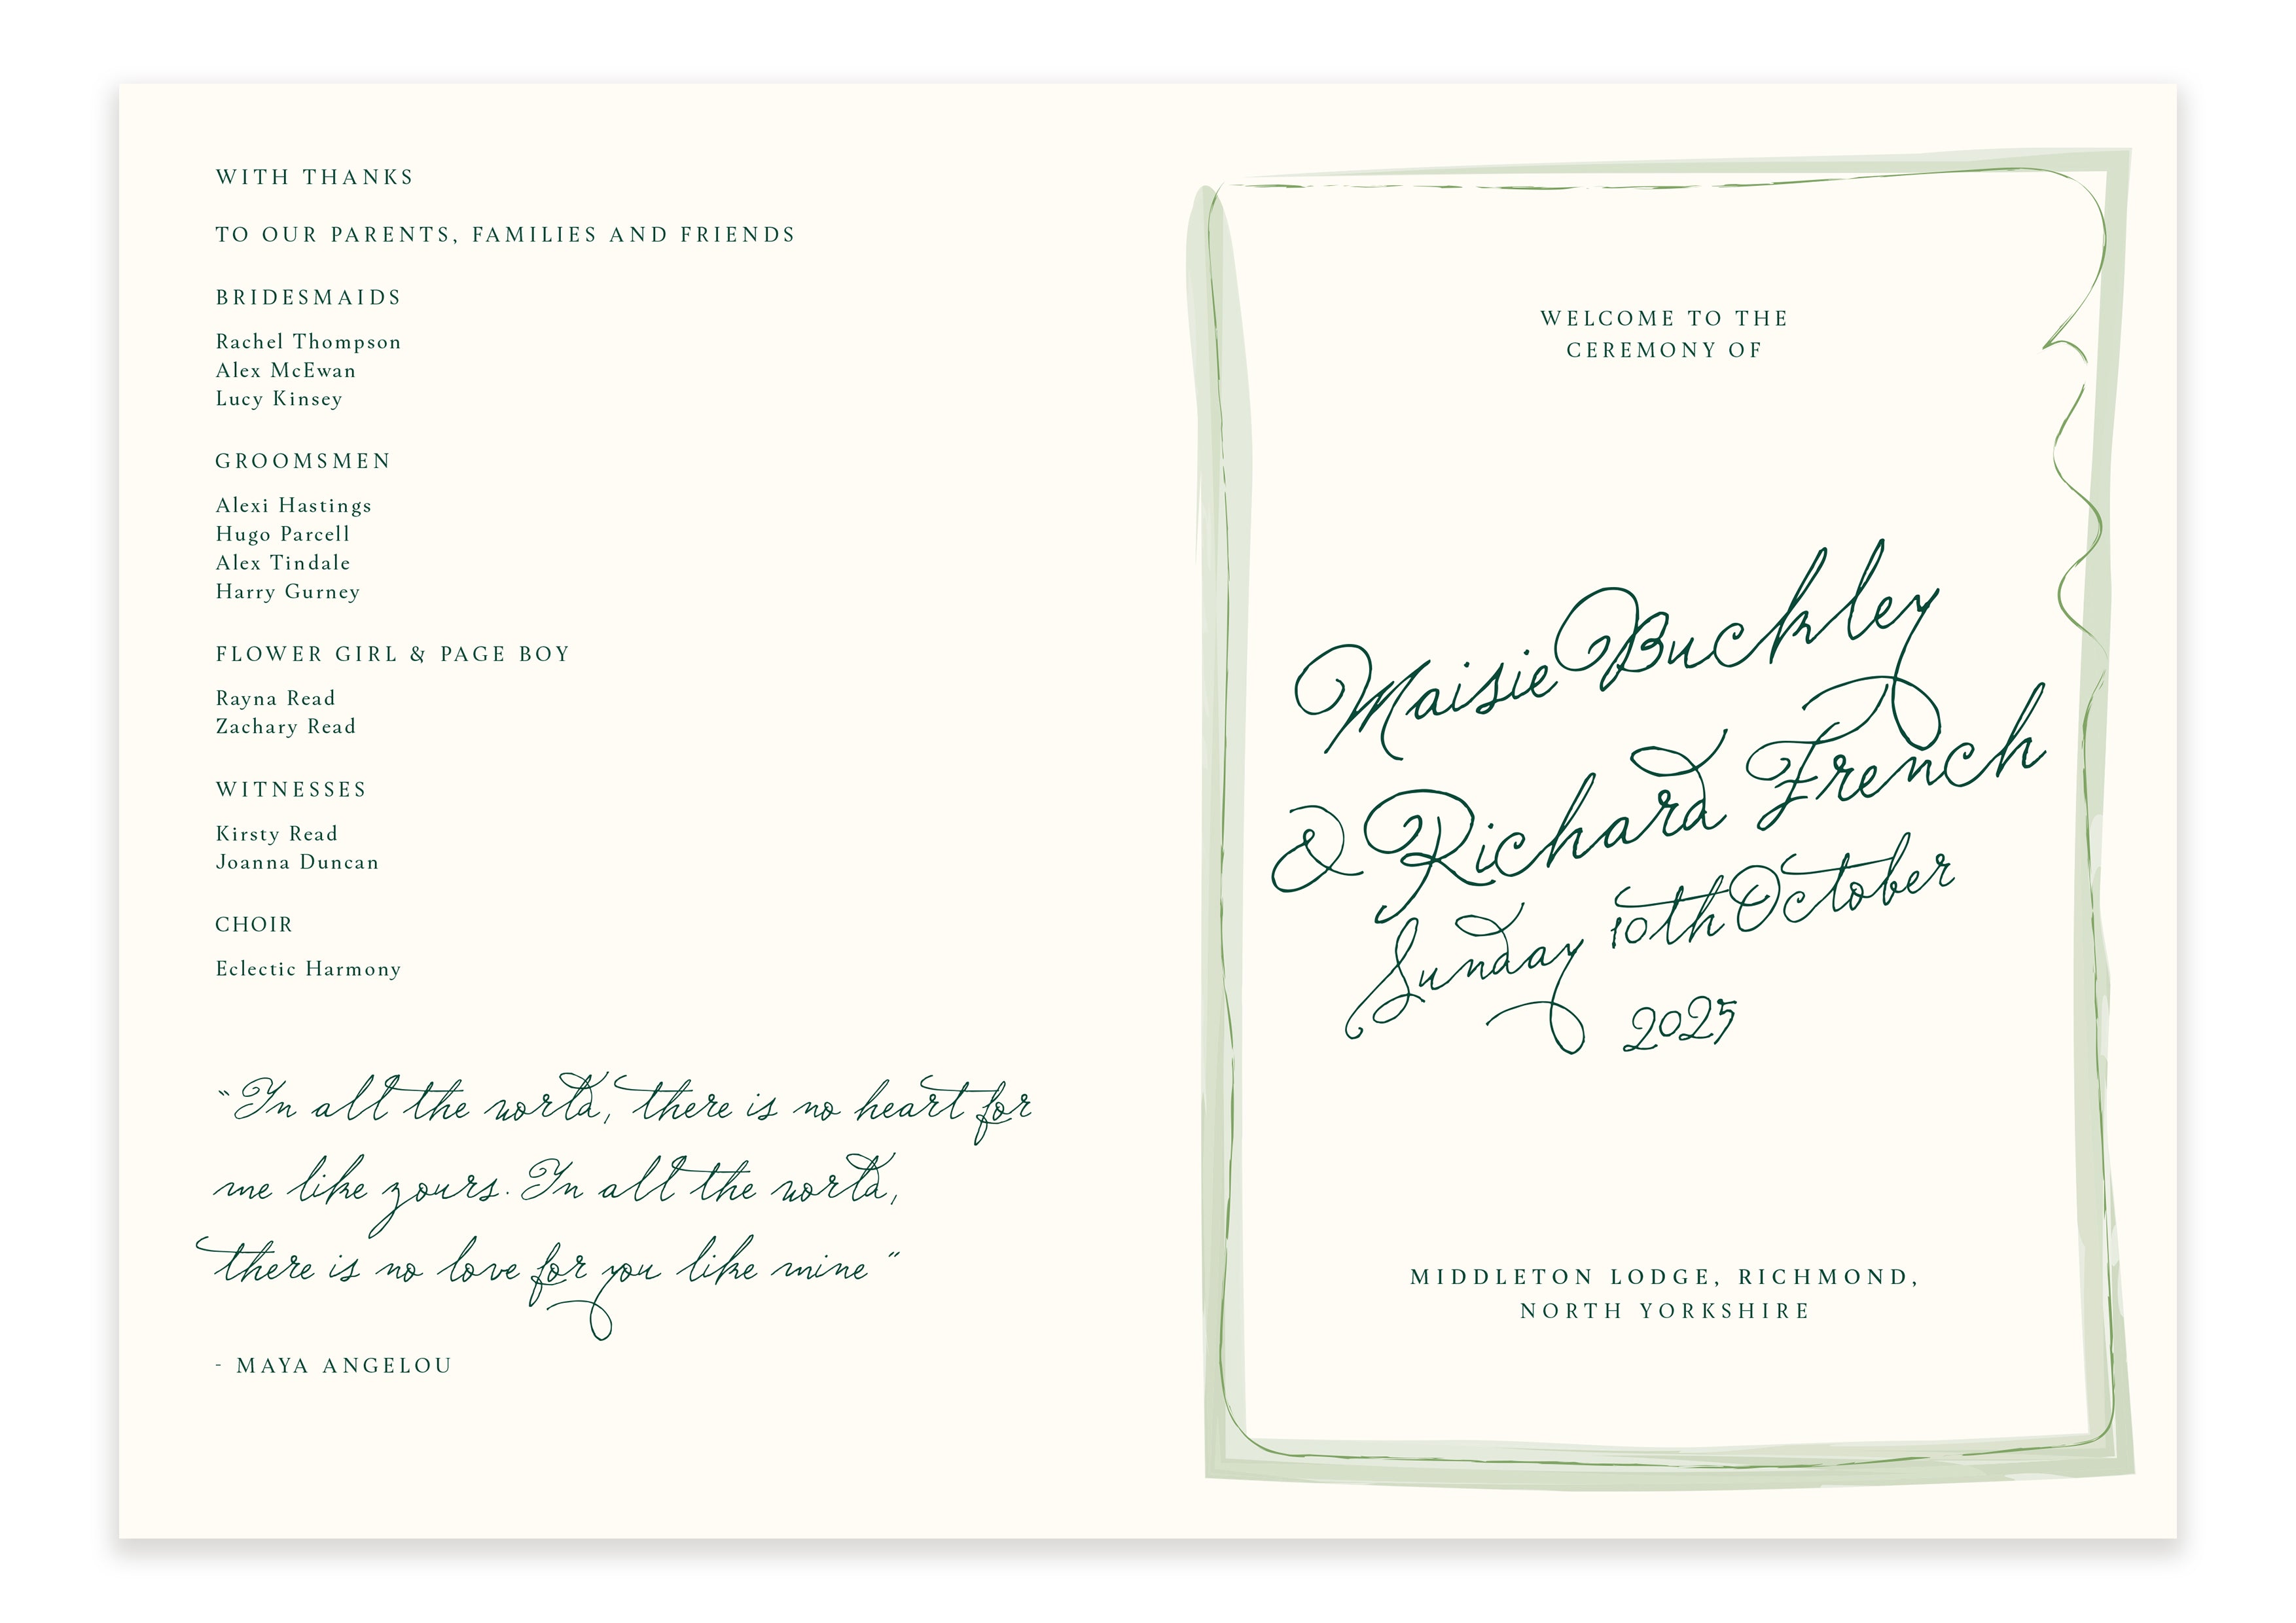 WITH THANKS
TO OUR PARENTS, FAMILIES AND FRIENDS
BRIDESMAIDS
Rachel Thompson
Alex McEwan
Lucy Kinsey
GROOMSMEN
Alexi Hastings
Hugo Parcell
Alex Tindale
Harry Gurney
FLOWER GIRL & PAGE BOY
Rayna Read
Zachary Read
WITNESSES
Kirsty Read
Joanna Duncan
CHOIR
Eclectic Harmony
"In all the world, there is no heart for
me like yours. In all the world,
there is no love for you like mine"
- MAYA ANGELOU
WELCOME TO THE
CEREMONY OF
Maisie Buckley
& Richard French
Sunday 10th October
2025
MIDDLETON LODGE, RICHMOND,
NORTH YORKSHIRE